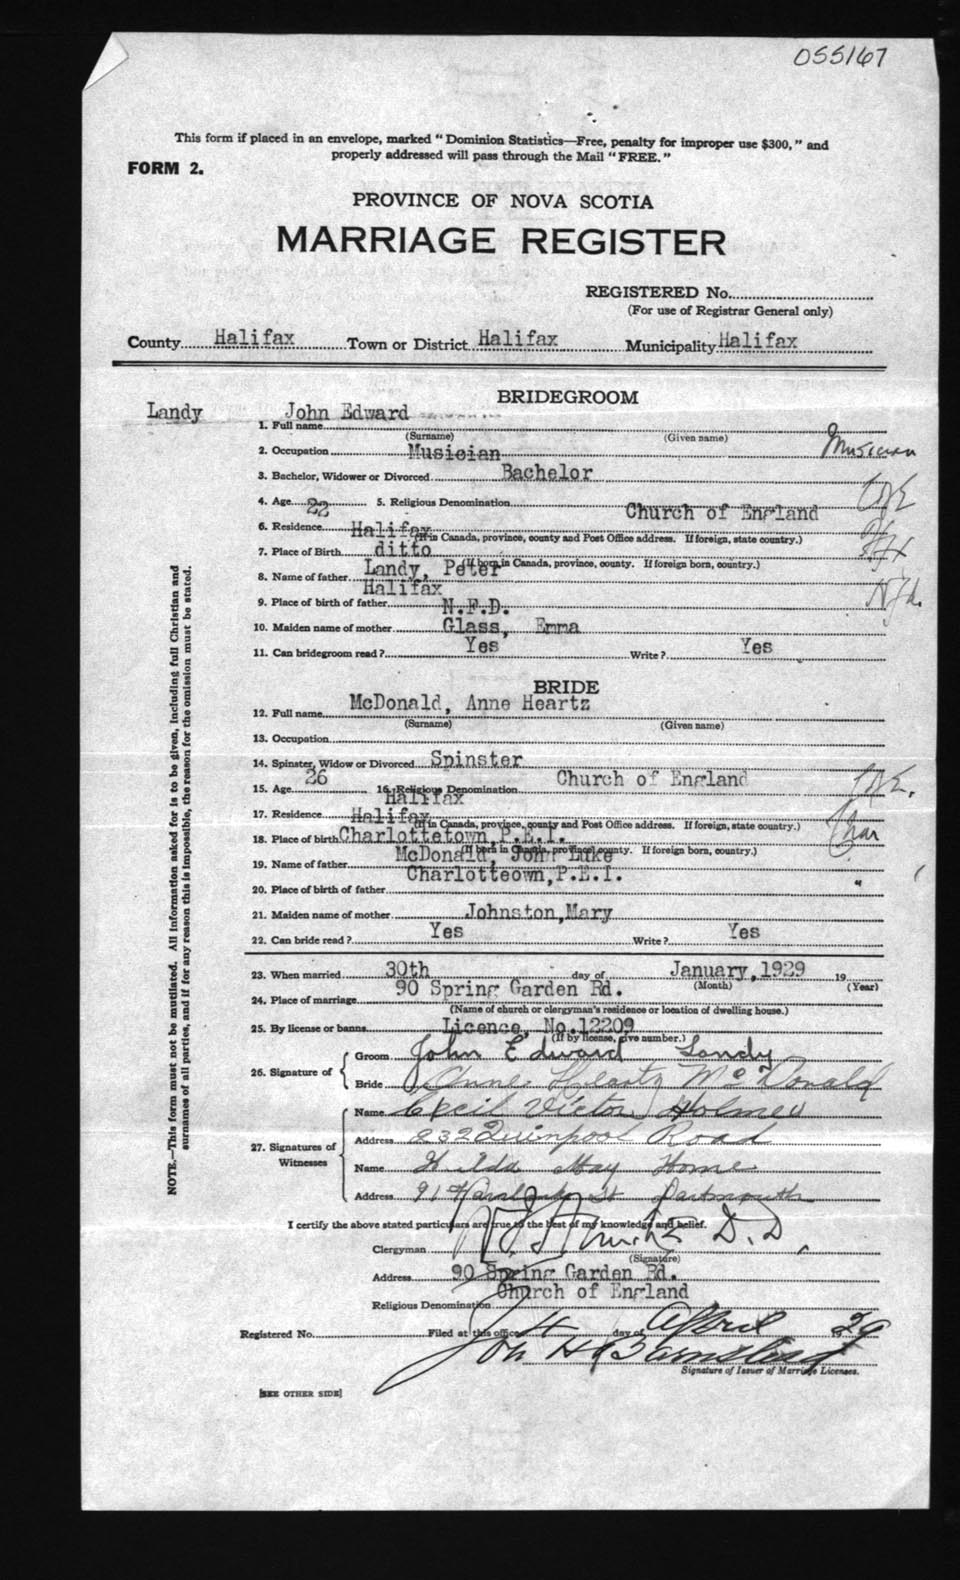 055167
This form if placed in an envelope, marked "Dominion Statistics—Free, penalty for improper use $300," and
properly addressed will pass through the Mail "FREE."
FORM 2.
PROVINCE OF NOVA SCOTIA
MARRIAGE REGISTER
REGISTERED No.
(For use of Registrar General only)
County Halifax Town or District Halifax Municipality Halifax
BRIDEGROOM
Landy John Edward
1. Full name
(Surname) (Given name)
2. Occupation Musician Musician
3. Bachelor, Widower or Divorced Bachelor
4. Age 22 5. Religious Denomination Church of England C of E
6. Residence Halifax
(If in Canada, province, county and Post Office address. If foreign, state country.)
7. Place of Birth ditto
(If born in Canada, province, county. If foreign born, country.)
8. Name of father Landy, Peter
Halifax
9. Place of birth of father N.F.D. Nfld.
10. Maiden name of mother Glass, Emma
11. Can bridegroom read? Yes Write? Yes
BRIDE
12. Full name McDonald, Anne Heartz
(Surname) (Given name)
13. Occupation
14. Spinster, Widow or Divorced Spinster
15. Age 26 16. Religious Denomination Church of England C of E.
Halifax
17. Residence Halifax
(If in Canada, province, county and Post Office address. If foreign, state country.)
18. Place of birth Charlottetown, P.E.I. Char
(If born in Canada, province, county. If foreign born, country.)
19. Name of father McDonald, John Luke
20. Place of birth of father Charlotteown, P.E.I. "
21. Maiden name of mother Johnston, Mary
22. Can bride read? Yes Write? Yes
23. When married 30th day of January, 1929 19
(Month) (Year)
24. Place of marriage 90 Spring Garden Rd.
(Name of church or clergyman's residence or location of dwelling house.)
25. By license or banns Licence, No. 12209
(If by license, give number.)
26. Signature of
Groom John Edward Landy
Bride Anne Heartz McDonald
27. Signatures of Witnesses
Name Cecil Victor Holmes
Address 232 Quinpool Road
Name Hilda May Home
Address 91 St Dartmouth
I certify the above stated particulars are true to the best of my knowledge and belief.
Clergyman D.D.
(Signature)
Address 90 Spring Garden Rd.
Religious Denomination Church of England
Registered No. Filed at this office 4 day of April 29
Signature of Issuer of Marriage Licenses.
[SEE OTHER SIDE]
NOTE.—This form must not be mutilated. All information asked for is to be given, including full Christian and
surnames of all parties, and if for any reason this is impossible, the reason for the omission must be stated.